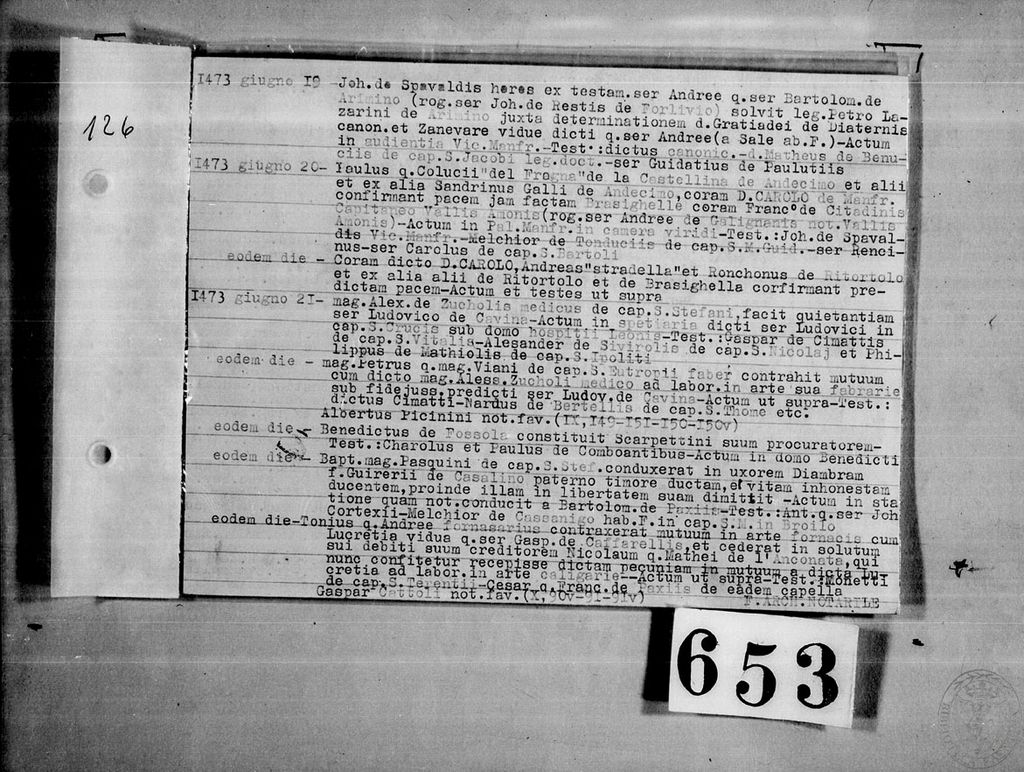 126
1473 giugno 19 -Joh.de Spavaldis heres ex testam.ser Andree q.ser Bartolom.de
Arimino (rog.ser Joh.de Restis de Forlivio) solvit leg.Petro La-
zarini de Arimino juxta determinationem d.Gratiadei de Diaternis
canon.et Zanevare vidue dicti q.ser Andree(a Sale ab.F.)-Actum
in audientia Vic.Manfr.-Test.:dictus canonic.-d.Matheus de Benu-
ciis de cap.S.Jacobi leg.doct.-ser Guidatius de Paulutiis
1473 giugno 20- Paulus q.Colucii"del Fragna"de la Castellina de Andecimo et alii
et ex alia Sandrinus Galli de Andecimo,coram D.CAROLO de Manfr.
confirmant pacem jam factam Brasighelle coram Franc°de Citadinis
Capitaneo Vallis Amonis(rog.ser Andree de Galignanis not.Vallis
Amonis)-Actum in Pal.Manfr.in camera viridi-Test.:Joh.de Spaval-
dis Vic.Manfr.-Melchior de Tonduciis de cap.S.M.Guid.-ser Renci-
nus-ser Carolus de cap.S.Bartoli
eodem die - Coram dicto D.CAROLO,Andreas"stradella"et Ronchonus de Ritortolo
et ex alia alii de Ritortolo et de Brasighella corfirmant pre-
dictam pacem-Actum et testes ut supra
1473 giugno 21- mag.Alex.de Zucholis medicus de cap.S.Stefani,facit quietantiam
ser Ludovico de Cavina-Actum in spetiaria dicti ser Ludovici in
cap.S.Crucis sub domo hospitii Leonis-Test.:Gaspar de Cimattis
de cap.S.Vitalis-Alesander de Sivirolis de cap.S.Nicolaj et Phi-
lippus de Mathiolis de cap.S.Ipoliti
eodem die - mag.Petrus q.mag.Viani de cap.S.Eutropii faber contrahit mutuum
cum dicto mag.Aless.Zucholi medico ad labor.in arte sua fabrarie
sub fidejuss.predicti ser Ludov.de Cavina-Actum ut supra-Test.:
dictus Cimatti-Nardus de Bertellis de cap.S.Thome etc.
Albertus Picinini not.fav.(IX,149-151-150-150v)
eodem die - Benedictus de Fossola constituit Scarpettini suum procuratorem-
Test.:Charolus et Paulus de Comboantibus-Actum in domo Benedicti
eodem die- Bapt.mag.Pasquini de cap.S.Stef.conduxerat in uxorem Diambram
f.Guirerii de Casalino paterno timore ductam,et vitam inhonestam
ducentem,proinde illam in libertatem suam dimittit -Actum in sta
tione quam not.conducit a Bartolom.de Paxiis-Test.:Ant.q.ser Joh
Cortexii-Melchior de Cassanigo hab.F.in cap.S.M.in Broilo
eodem die-Tonius q.Andree fornasarius contraxerat mutuum in arte fornacis cum
Lucretia vidua q.ser Gasp.de Caffarellis,et cederat in solutum
sui debiti suum creditorem Nicolaum q.Mathei de l'Anconata,qui
nunc confitetur recepisse dictam pecuniam in mutuum a dicta Lu-
cretia ad labor.in arte caligarie--Actum ut supra-Test.:
de cap.S.Terentii-Cesar q.Franc.de Paxiis de eadem capella
Gaspar Cattoli not.fav.(X,90v-91-91v) F.ARCH.NOTARILE
653